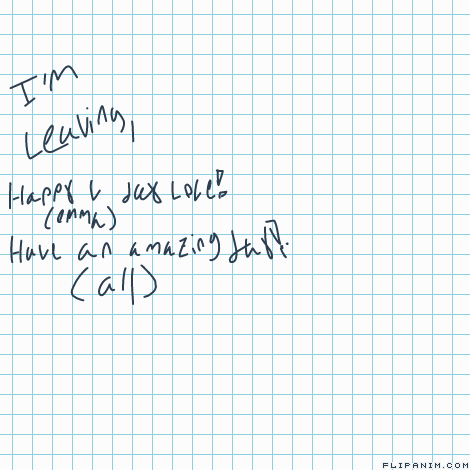 I'm
Leaving,
Happy v day Love!
(emma)
Have an amazing day!
(all)
FLIPANIM.COM